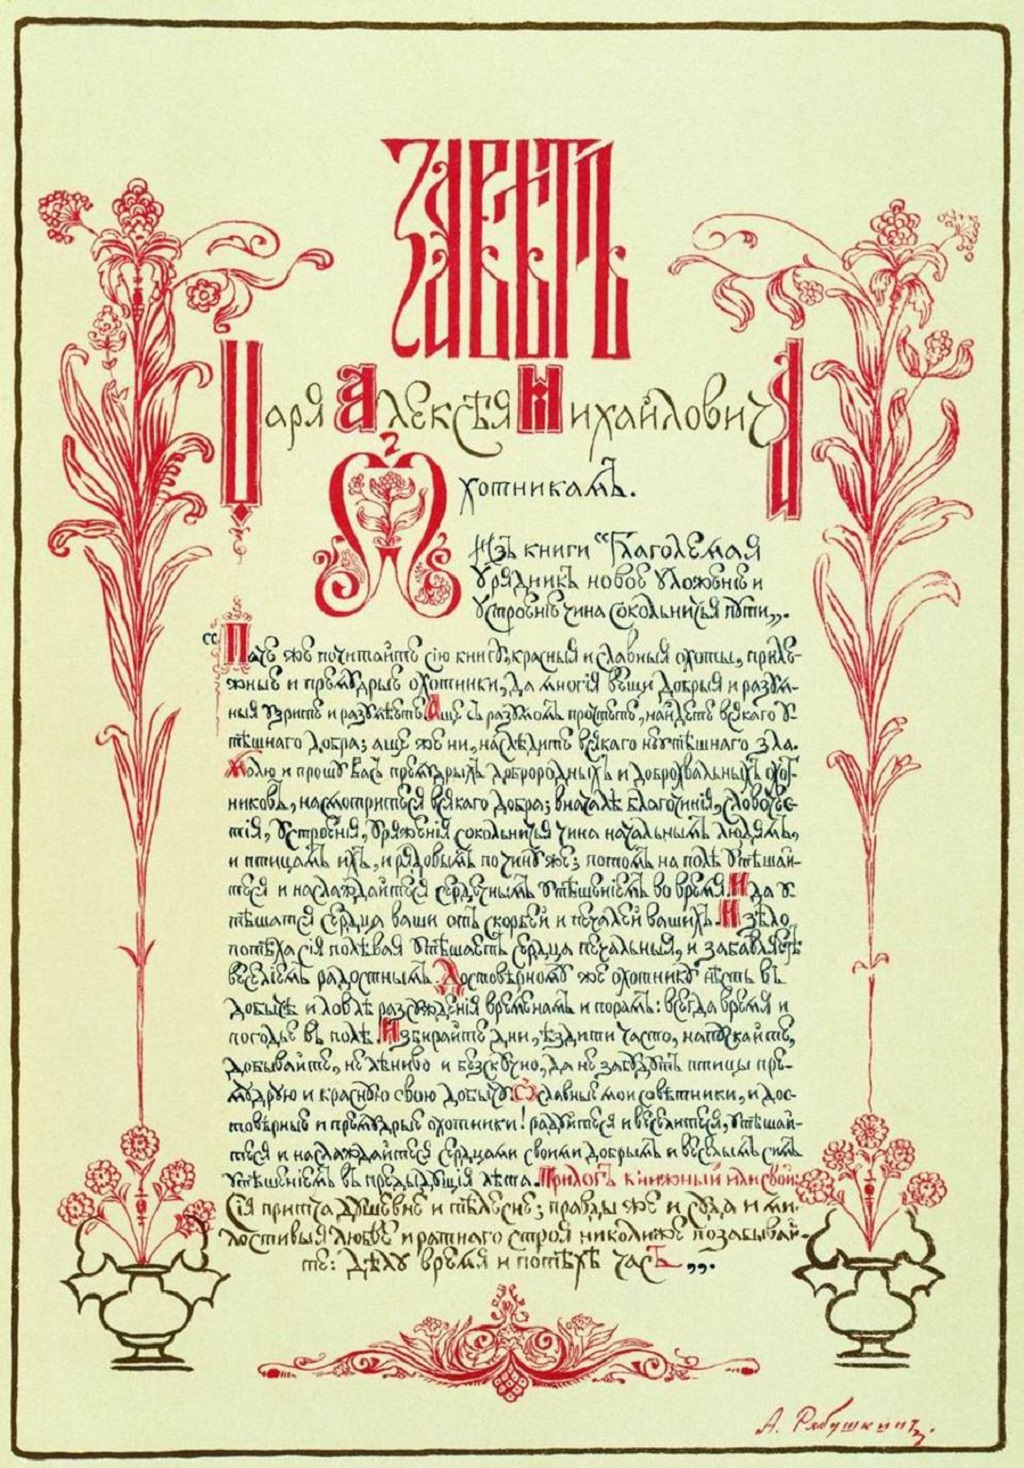 Завѣтъ
Царя Алексѣя Михайловича
Охотникамъ.
Изъ книги “Глаголемая
Урядникъ новое уложеніе и
устроеніе чина сокольничья пути„.
“Паче же почитайте сію книгу, красныя и славныя охоты, приле-
жные и премудрые охотники, да многія вещи добрыя и разум-
ныя узрите и разумѣете. Аще съ разумомъ прочтете, найдете всякаго у-
тѣшнаго добра; аще же ни, наслѣдите всякаго неутѣшнаго зла.
Молю и прошу васъ премудрыхъ, доброродныхъ и доброхвальныхъ охот-
никовъ, насмотритеся всякаго добра; вначалѣ благочинія, славочес-
тія, устроенія, уряженія сокольничья чина начальнымъ людямъ,
и птицамъ ихъ, и рядовымъ по чину же; потомъ на полѣ утѣшай-
теся и наслаждайтеся сердечнымъ утѣшеніемъ во время. И да у-
тѣшатся сердца ваши отъ скорбей и печалей вашихъ. И зѣло
потѣха сія полевая утѣшаетъ сердца печальныя, и забавляетъ
веселіемъ радостнымъ. Достовѣрному же охотнику нѣсть въ
добычѣ и ловлѣ разсужденія временамъ и порамъ: всегда время и
погодье въ полѣ. Избирайте дни, ѣздите часто, напускайте,
добывайте, не лѣниво и безскучно, да не забудутъ птицы пре-
мудрую и красную свою добычу. О славные мои совѣтники, и дос-
товѣрные и премудрые охотники! радуйтеся и веселитеся, утѣшай-
теся и наслаждайтеся сердцами своими добрымъ и веселымъ симъ
утѣшеніемъ въ предыдущія лѣта. Прилогъ книжный или свой:
Сія притча душевне и тѣлесне; правды же и суда и ми-
лостивыя любве и ратнаго строя николиже позабывай-
те: дѣлу время и потѣхѣ часъ„.
А. Рябушкинъ.